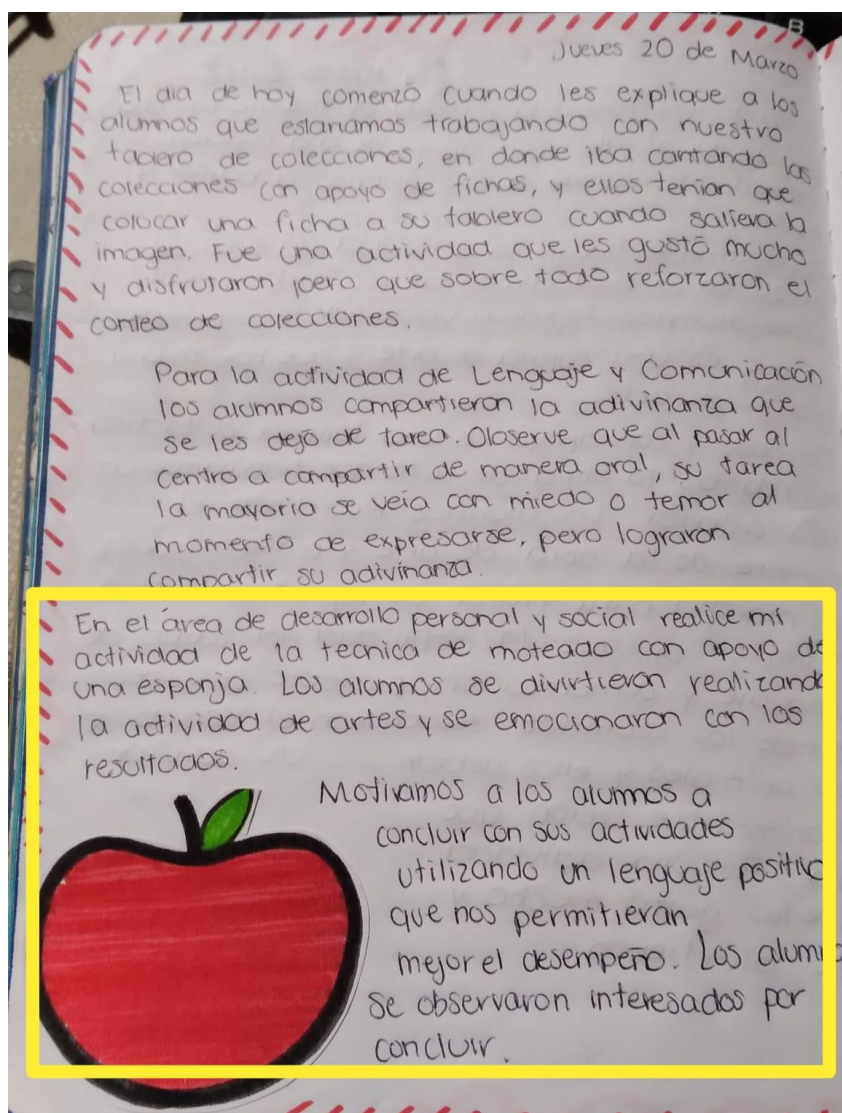 Jueves 20 de Marzo
El dia de hoy comenzó cuando les explique a los
alumnos que estariamos trabajando con nuestro
tablero de colecciones, en donde iba cantando las
colecciones con apoyo de fichas, y ellos tenian que
colocar una ficha a su tablero cuando saliera la
imagen. Fue una actividad que les gustó mucho
y disfrutaron pero que sobre todo reforzaron el
conteo de colecciones.
Para la actividad de Lenguaje y Comunicación
los alumnos compartieron la adivinanza que
se les dejó de tarea. Observe que al pasar al
centro a compartir de manera oral, su tarea
la mayoria se veía con miedo o temor al
momento de expresarse, pero lograron
compartir su adivinanza.
En el área de desarrollo personal y social realice mi
actividad de la tecnica de moteado con apoyo de
una esponja. Los alumnos se divirtieron realizando
la actividad de artes y se emocionaron con los
resultados.
Motivamos a los alumnos a
concluir con sus actividades
utilizando un lenguaje positivo
que nos permitieran
mejor el desempeño. Los alumno
se observaron interesados por
concluir.